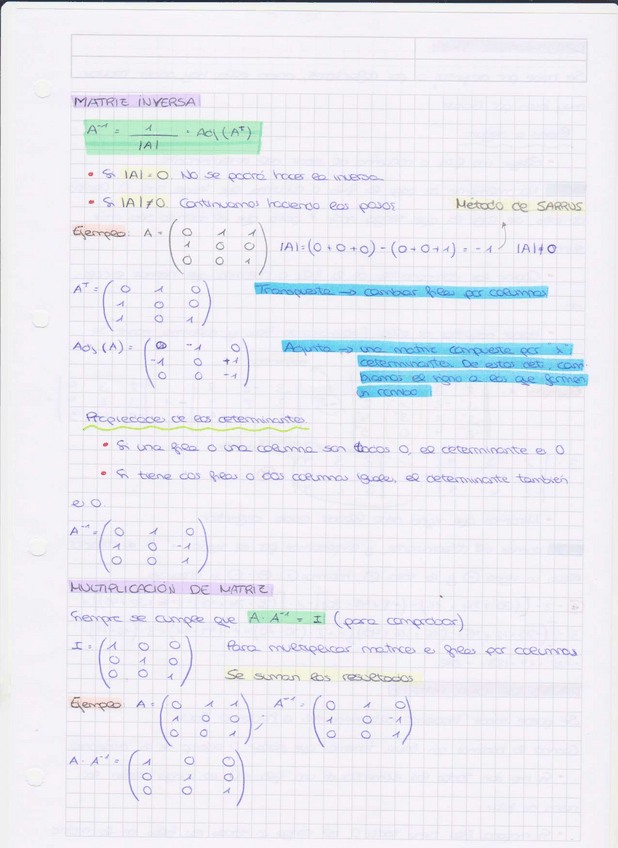 MATRIZ INVERSA
A⁻¹ = 1/|A| · Adj (Aᵀ)
• Si |A| = 0. No se podrá hacer la inversa
• Si |A| ≠ 0. Continuamos haciendo los pasos
Método de SARRUS
Ejemplo: A = (0 1 1
1 0 0
0 0 1) |A| = (0+0+0) - (0+0+1) = -1 |A| ≠ 0
Aᵀ = (0 1 0
1 0 0
1 0 1) Transpuesta → cambiar filas por columnas
Adj (A) = (0 -1 0
-1 0 +1
0 0 -1)
Adjunta → una matriz compuesta por "x"
determinantes. De estos det., cam
biamos el signo a los que forman
un rombo
Propiedades de los determinantes
• Si una fila o una columna son todos 0, el determinante es 0
• Si tiene dos filas o dos columnas iguales, el determinante también
es 0.
A⁻¹ = (0 1 0
1 0 -1
0 0 1)
MULTIPLICACIÓN DE MATRIZ
Siempre se cumple que A · A⁻¹ = I (para comprobar)
I = (1 0 0
0 1 0
0 0 1)
Para multiplicar matrices es filas por columnas
Se suman los resultados
Ejemplo: A = (0 1 1
1 0 0
0 0 1) ; A⁻¹ = (0 1 0
1 0 -1
0 0 1)
A · A⁻¹ = (1 0 0
0 1 0
0 0 1)